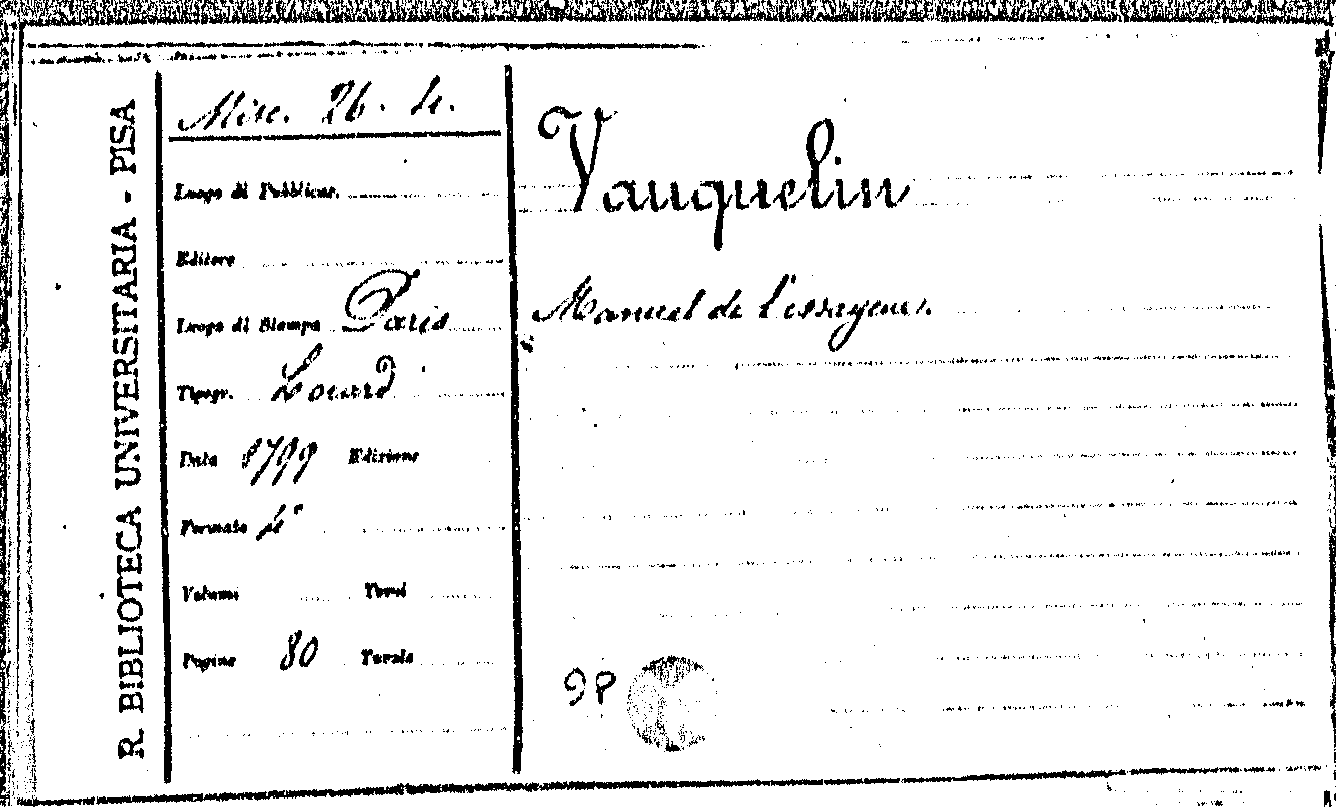 R. BIBLIOTECA UNIVERSITARIA - PISA
Misc. 26. 4.
Luogo di Pubblicaz.
Editore
Luogo di Stampa Paris
Tipogr.
Data 1799 Edizione
Formato 4°
Volumi Tomi
Pagine 80 Tavole
Vauquelin
Manuel de l'essayeur.